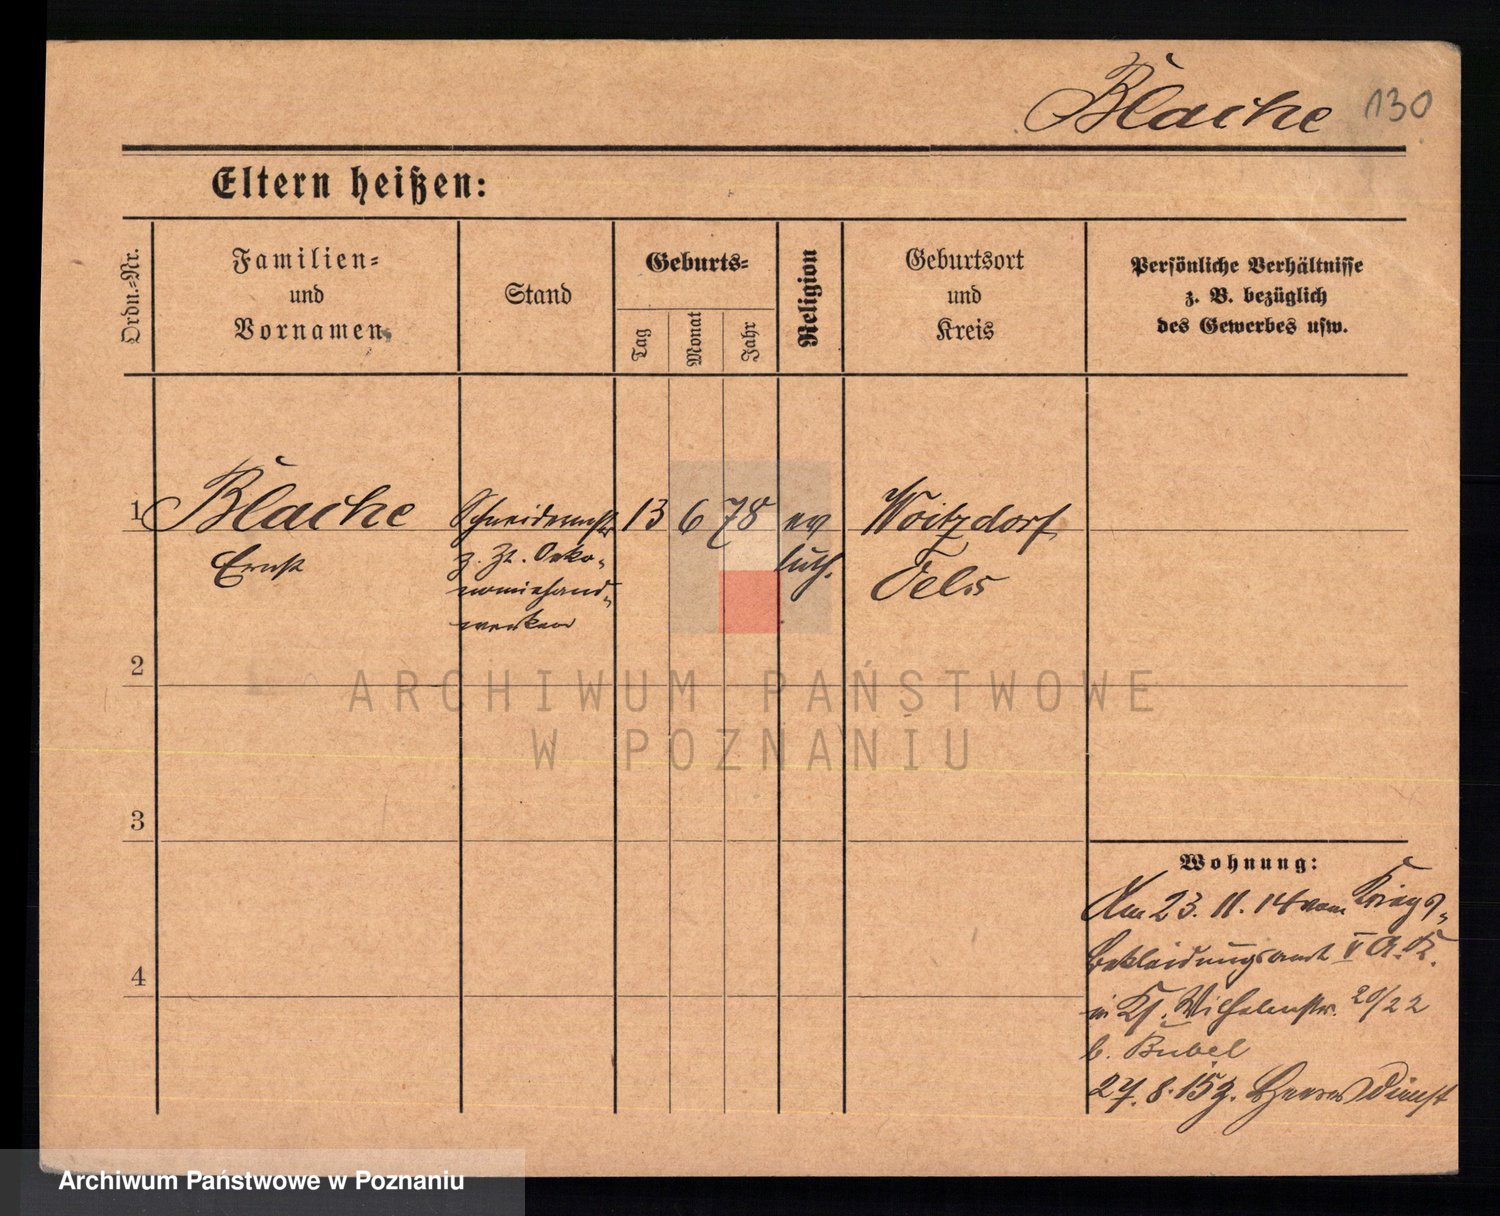 Blache 130
Eltern heißen:
Ordn.-Nr.
Familien-
und
Vornamen
Stand
Geburts-
Tag
Monat
Jahr
Religion
Geburtsort
und
Kreis
Persönliche Verhältnisse
z. B. bezüglich
des Gewerbes usw.
1 Blache Schneidermstr 13 6 78 ev Woitzdorf
Ernst z. Zt. Oeko- luth. Oels
nomiehand-
werker
2
3
4
Wohnung:
Am 23. 11. 14 vom Kriegs-
bekleidungsamt V A.K.
in Kj. Wilhelmstr. 20/22
b. Bubel
27. 8. 15 z. Heeresdienst
ARCHIWUM PAŃSTWOWE
W POZNANIU
Archiwum Państwowe w Poznaniu